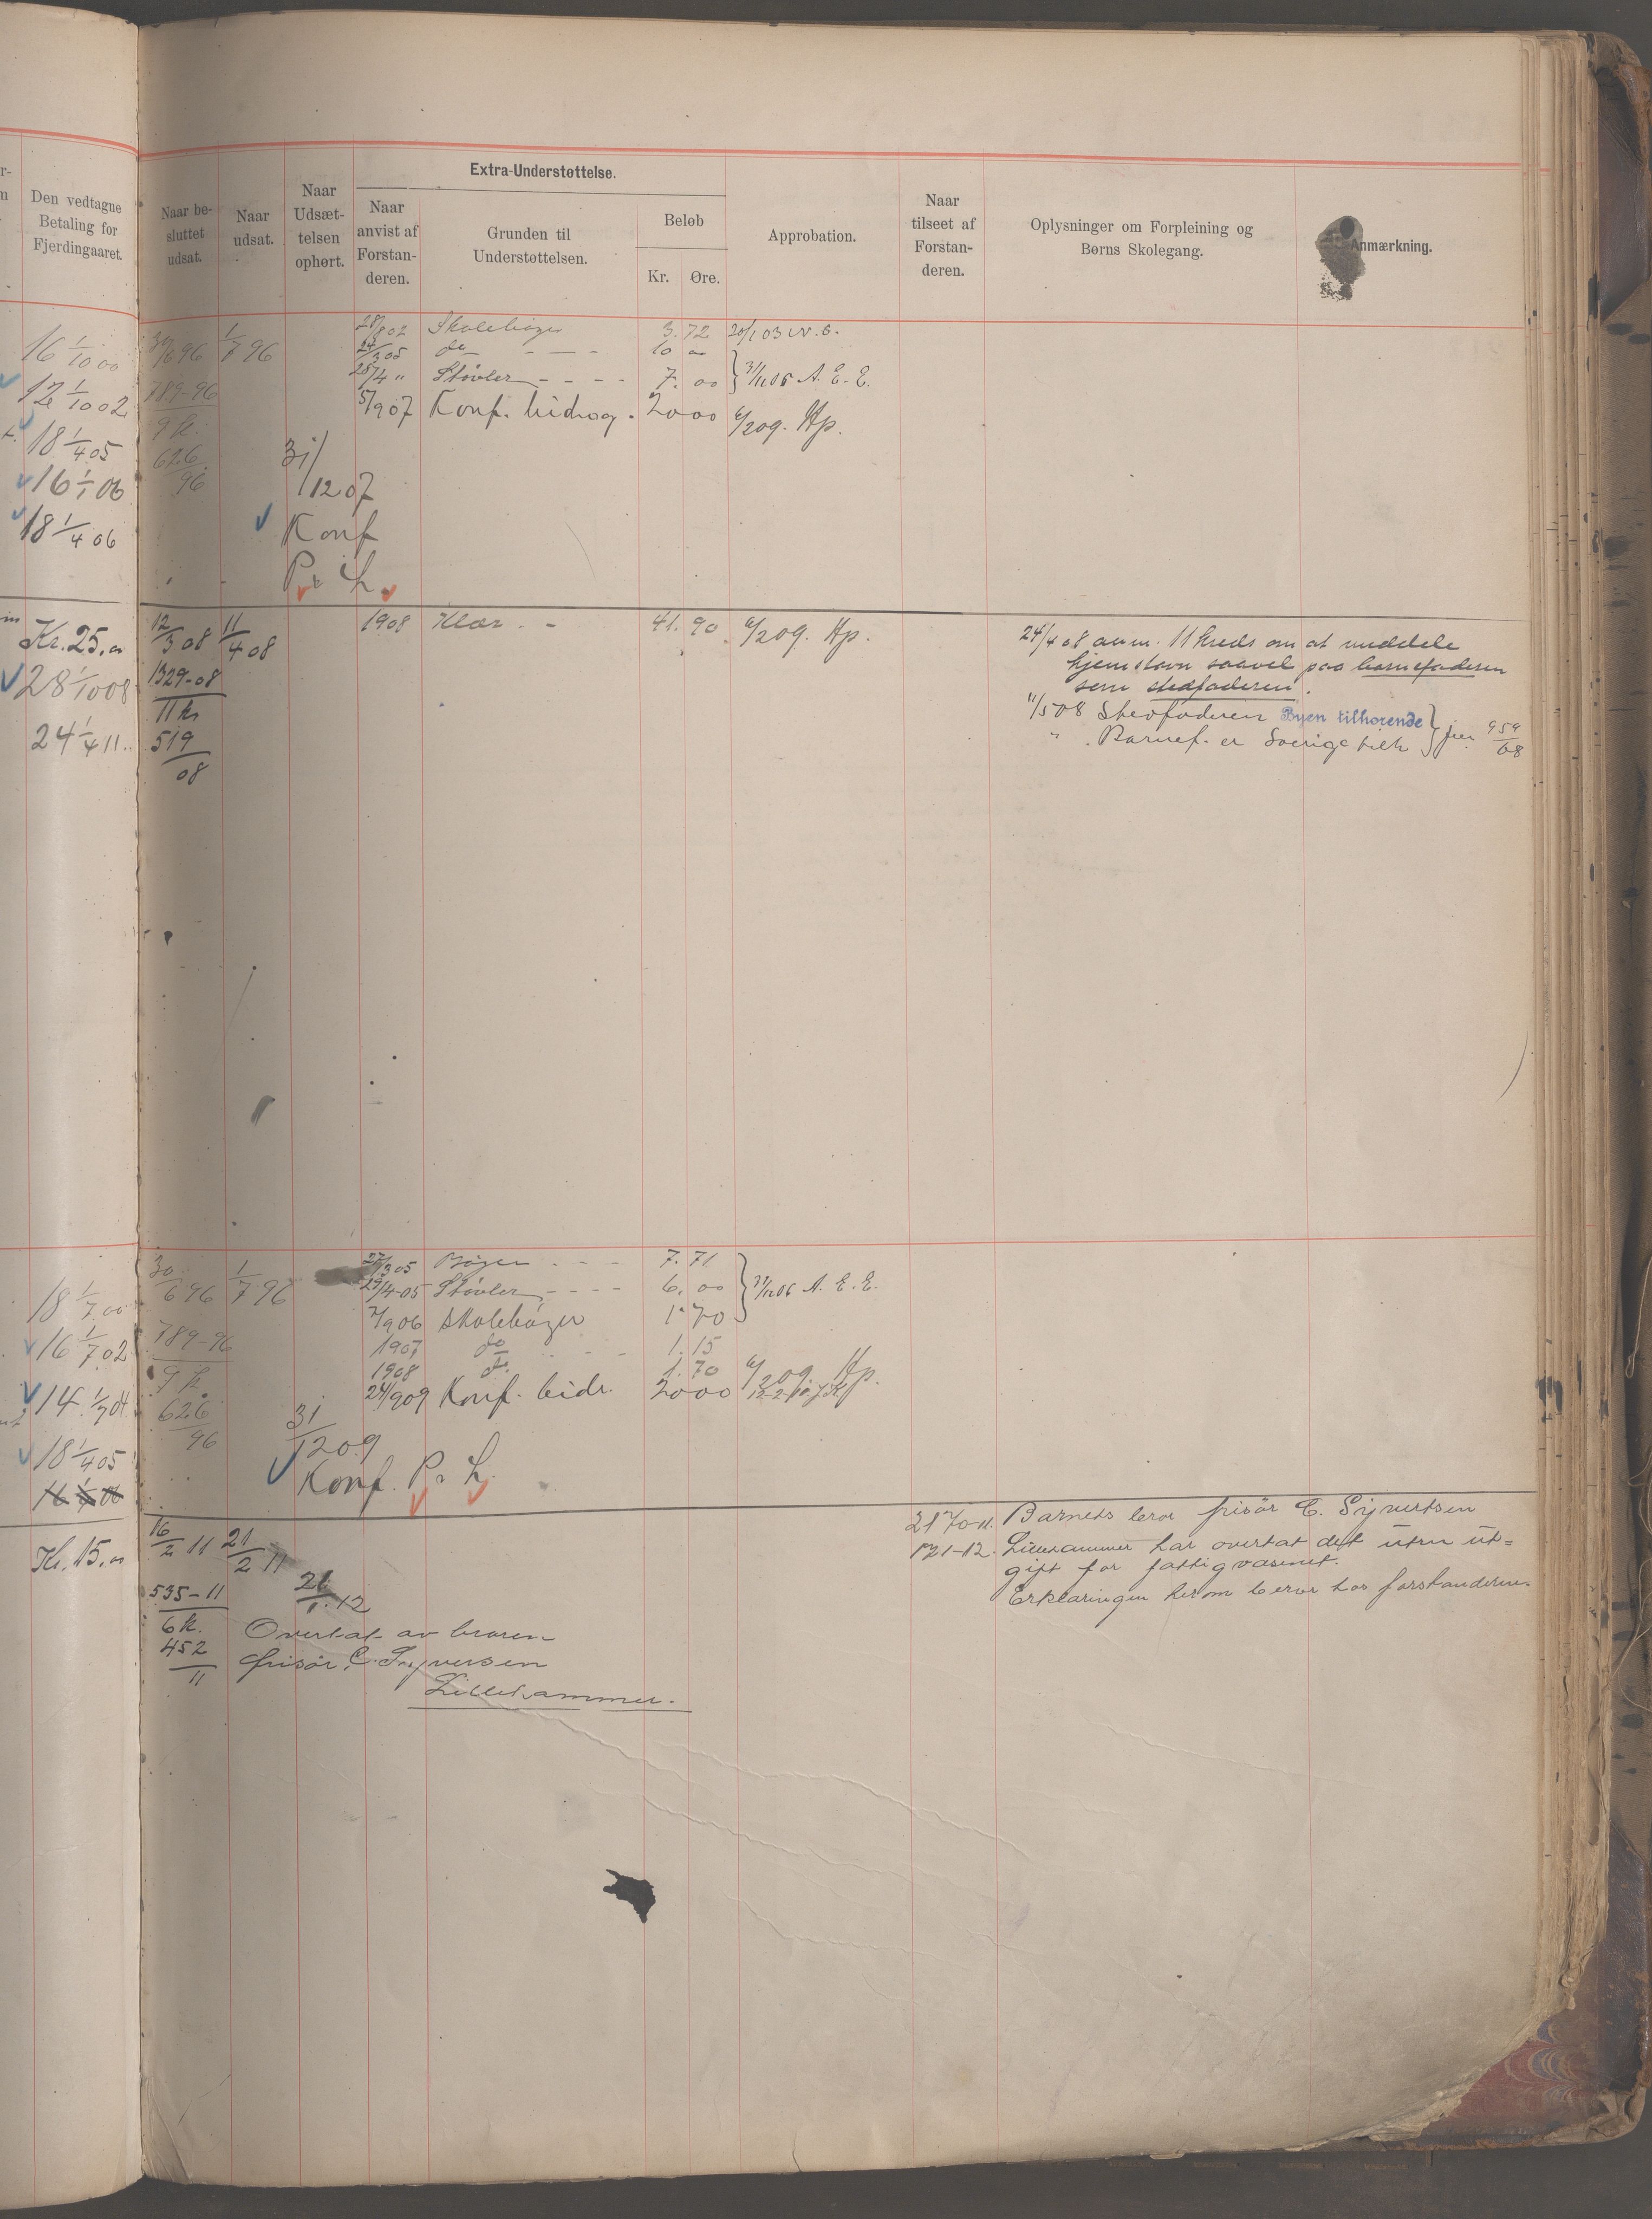 Den vedtagne
Betaling for
Fjerdingaaret.
Naar be-
sluttet
udsat.
Naar
udsat.
Naar
Udsæt-
telsen
ophørt.
Extra-Understøttelse.
Naar
anvist af
Forstan-
deren.
Grunden til
Understøttelsen.
Beløb
Kr. Øre.
Approbation.
Naar
tilseet af
Forstan-
deren.
Oplysninger om Forpleining og
Børns Skolegang.
Anmærkning.
16 1/10 00
12 1/10 02
18 1/4 05
16 1/1 06
18 1/4 06
30/6 96 1/7 96
789-96
9 k.
626
96
31/12 07
Konf
28/8 02 Skolebøger 3.72 20/1 03
24/3 05 do - - - 10 00
25/4 " Støvler - - - - 7.00 31/12 05 A. E. E.
5/9 07 Konf. bidrag. 20 00 6/2 09. Hp.
Kr. 25.00
28 1/10 08
24 1/4 11.
12/3 08 11/4 08
1329-08
11 kr
519
08
1908 Klær. - 41.90 6/2 09. Hp.
24/4 08 anm. 11 kreds om at meddele
hjemstavn saavel paa barnefaderen
som stedfaderen.
11/5 08 Stedfaderen Byen tilhørende
" . Barnef. er Sverige tilh 959
08
18 1/7 00
16 1/7 02
14. 1/7 04
18 1/4 05
16 1/1 06
30/6 96 1/7 96
789-96
9 k.
626
96
31/12 09
Konf.
27/3 05 Bøger - - - 7.71
29/4-05 Støvler - - - - 6.00 31/12 06 A. E. E.
7/9 06 Skolebøger 1.70
1907 do - - - 1.15
1908 do. 1.70 6/2 09. Hp.
24/9 09 Konf. bidr. 20 00
Kr. 15.00
16/2 11 21/2 11
535-11
6 k.
452
11
21/1.12
Overtat av broren
frisør C. Syversen
Lillehammer.
21/10-11. Barnets bror frisör C. Syvertsen
21-12. Lillehammer har overtat det uten ut=
gift for fattigvæsenet.
Erklæringen herom beror hos forstanderen.